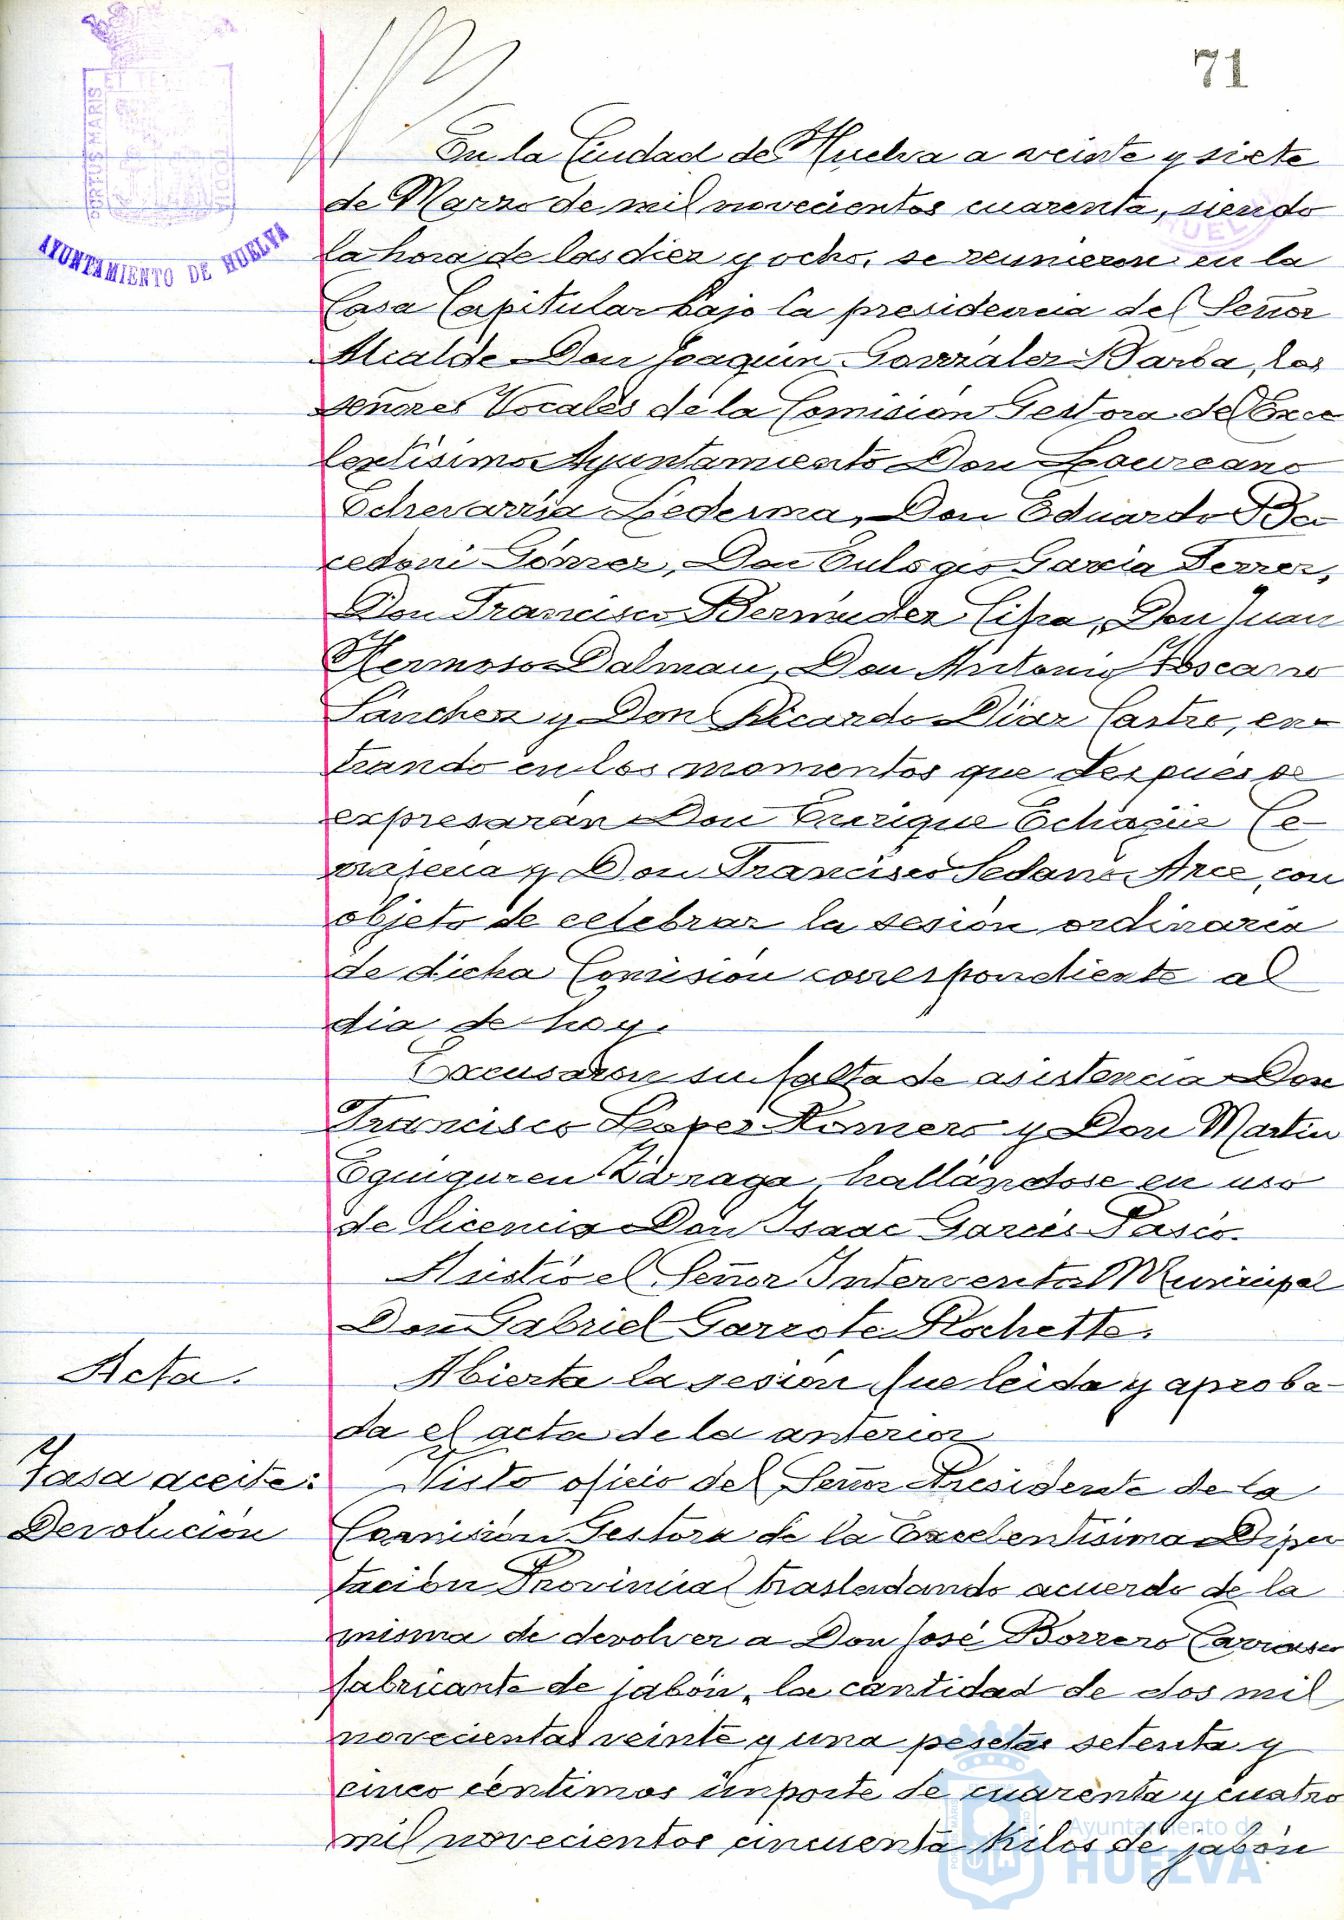 71
PORTUS MARIS ET TERRÆ CUSTODIA
AYUNTAMIENTO DE HUELVA
En la Ciudad de Huelva a veinte y siete
de Marzo de mil novecientos cuarenta, siendo
la hora de las diez y ocho, se reunieron en la
Casa Capitular bajo la presidencia del Señor
Alcalde Don Joaquín González Barba, los
señores Vocales de la Comisión Gestora del Exce
lentísimo Ayuntamiento Don Laureano
Echevarría Ledesma, Don Eduardo Ba-
cedoni Gómez, Don Eulogio García Ferrer,
Don Francisco Bermúdez Cipa, Don Juan
Hermoso Dalmau, Don Antonio Toscano
Sánchez y Don Ricardo Díaz Castro, en-
trando en los momentos que después se
expresarán Don Enrique Echagüe Ce-
y Don Francisco Sedano Arce, con
objeto de celebrar la sesión ordinaria
de dicha Comisión correspondiente al
dia de hoy.
Excusaron su falta de asistencia Don
Francisco López Romero y Don Martin
Eguiguren Zárraga, hallándose en uso
de licencia Don Isaac García Pasco.
Asistió el Señor Interventor Municipal
Don Gabriel Garrote Rochette.
Acta.
Abierta la sesión fue leida y aproba-
da el acta de la anterior
Tasa aceite:
Devolución
Visto oficio del Señor Presidente de la
Comisión Gestora de la Excelentísima Dipu
tación Provincial trasladando acuerdo de la
misma de devolver a Don José Borrero Carrasco
fabricante de jabón, la cantidad de dos mil
novecientas veinte y una pesetas setenta y
cinco céntimos importe de cuarenta y cuatro
mil novecientos cincuenta kilos de jabón
Ayuntamiento de
HUELVA